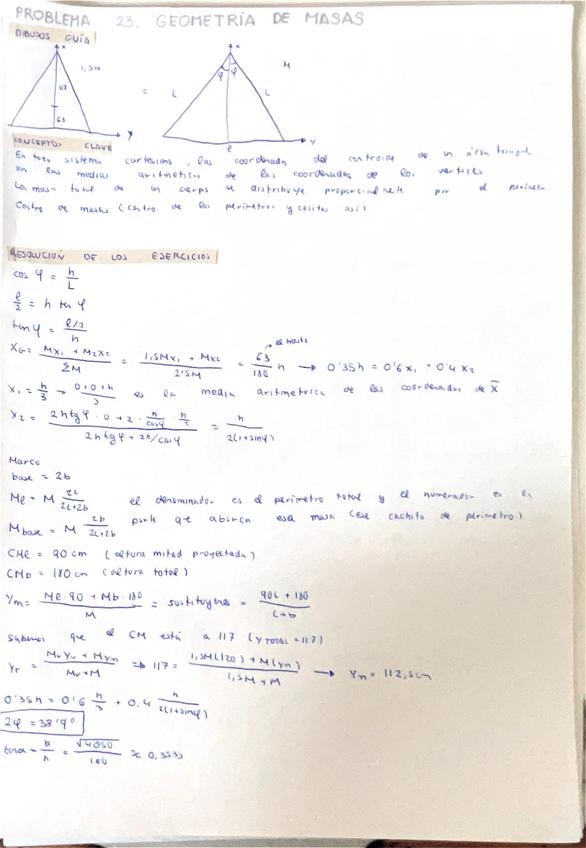 PROBLEMA 23. GEOMETRÍA DE MASAS
DIBUJOS GUÍA
x
1,5M
117
63
y
=
x
φ φ
M
L
L
l
y
CONCEPTOS CLAVE
En todo sistema cartesiano, las coordenada del centroide de un área triangular
son las medias aritmetica de las coordenadas de los vertices
La masa total de un cuerpo se distribuye proporcionalmente por el perímetro
Centro de masas (centro de los perímetros y cositas así)
RESOLUCIÓN DE LOS EJERCICIOS
cos φ = h/L
l/2 = h tan φ
tan φ = (l/2)/h
el dato
XG = (Mx1 + M2x2)/ΣM = (1,5Mx1 + Mx2)/2'5M = 63/180 h → 0'35h = 0'6 x1 + 0'4 x2
x1 = h/3 → (0+0+h)/3 es la media aritmetrica de las coordenadas de x̄
x2 = (2htgφ · 0 + 2 · h/cosφ · h/2)/(2htgφ + 2h/cosφ) = h/2(1+sinφ)
Marco
base = 2b
Ml = M 2L/(2L+2b) el denominador es el perímetro total y el numerador es la
Mbase = M 2b/(2L+2b) parte que abarca esa masa (ese cachito de perímetro)
CMl = 90 cm (altura mitad proyectada)
CMb = 180 cm (altura total)
Ym = (Ml·90 + Mb·180)/M = sustituyendo = (90L + 180)/(L+b)
sabemos que el CM está a 117 (YTOTAL = 117)
YT = (MvYv + MYm)/(Mv+M) ⇒ 117 = (1,5M(120) + M(Ym))/(1,5M+M) → Ym = 112,5cm
0'35h = 0'6 h/3 + 0.4 h/2(1+sinφ)
2φ = 38'9°
tanα = b/h = √4050/180 ≈ 0,3535